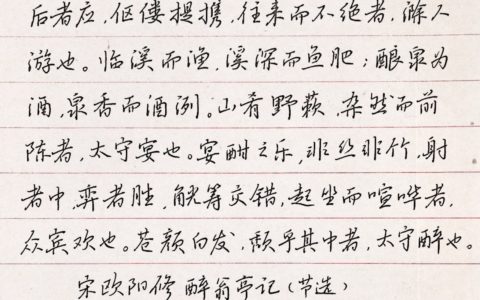 后者应,伛偻提携,往来而不绝者,滁人
游也。临溪而渔,溪深而鱼肥;酿泉为
酒,泉香而酒洌。山肴野蔌,杂然而前
陈者,太守宴也。宴酣之乐,非丝非竹,射
者中,弈者胜,觥筹交错,起坐而喧哗者,
众宾欢也。苍颜白发,颓乎其中者,太守醉也。
宋欧阳修 醉翁亭记(节选)